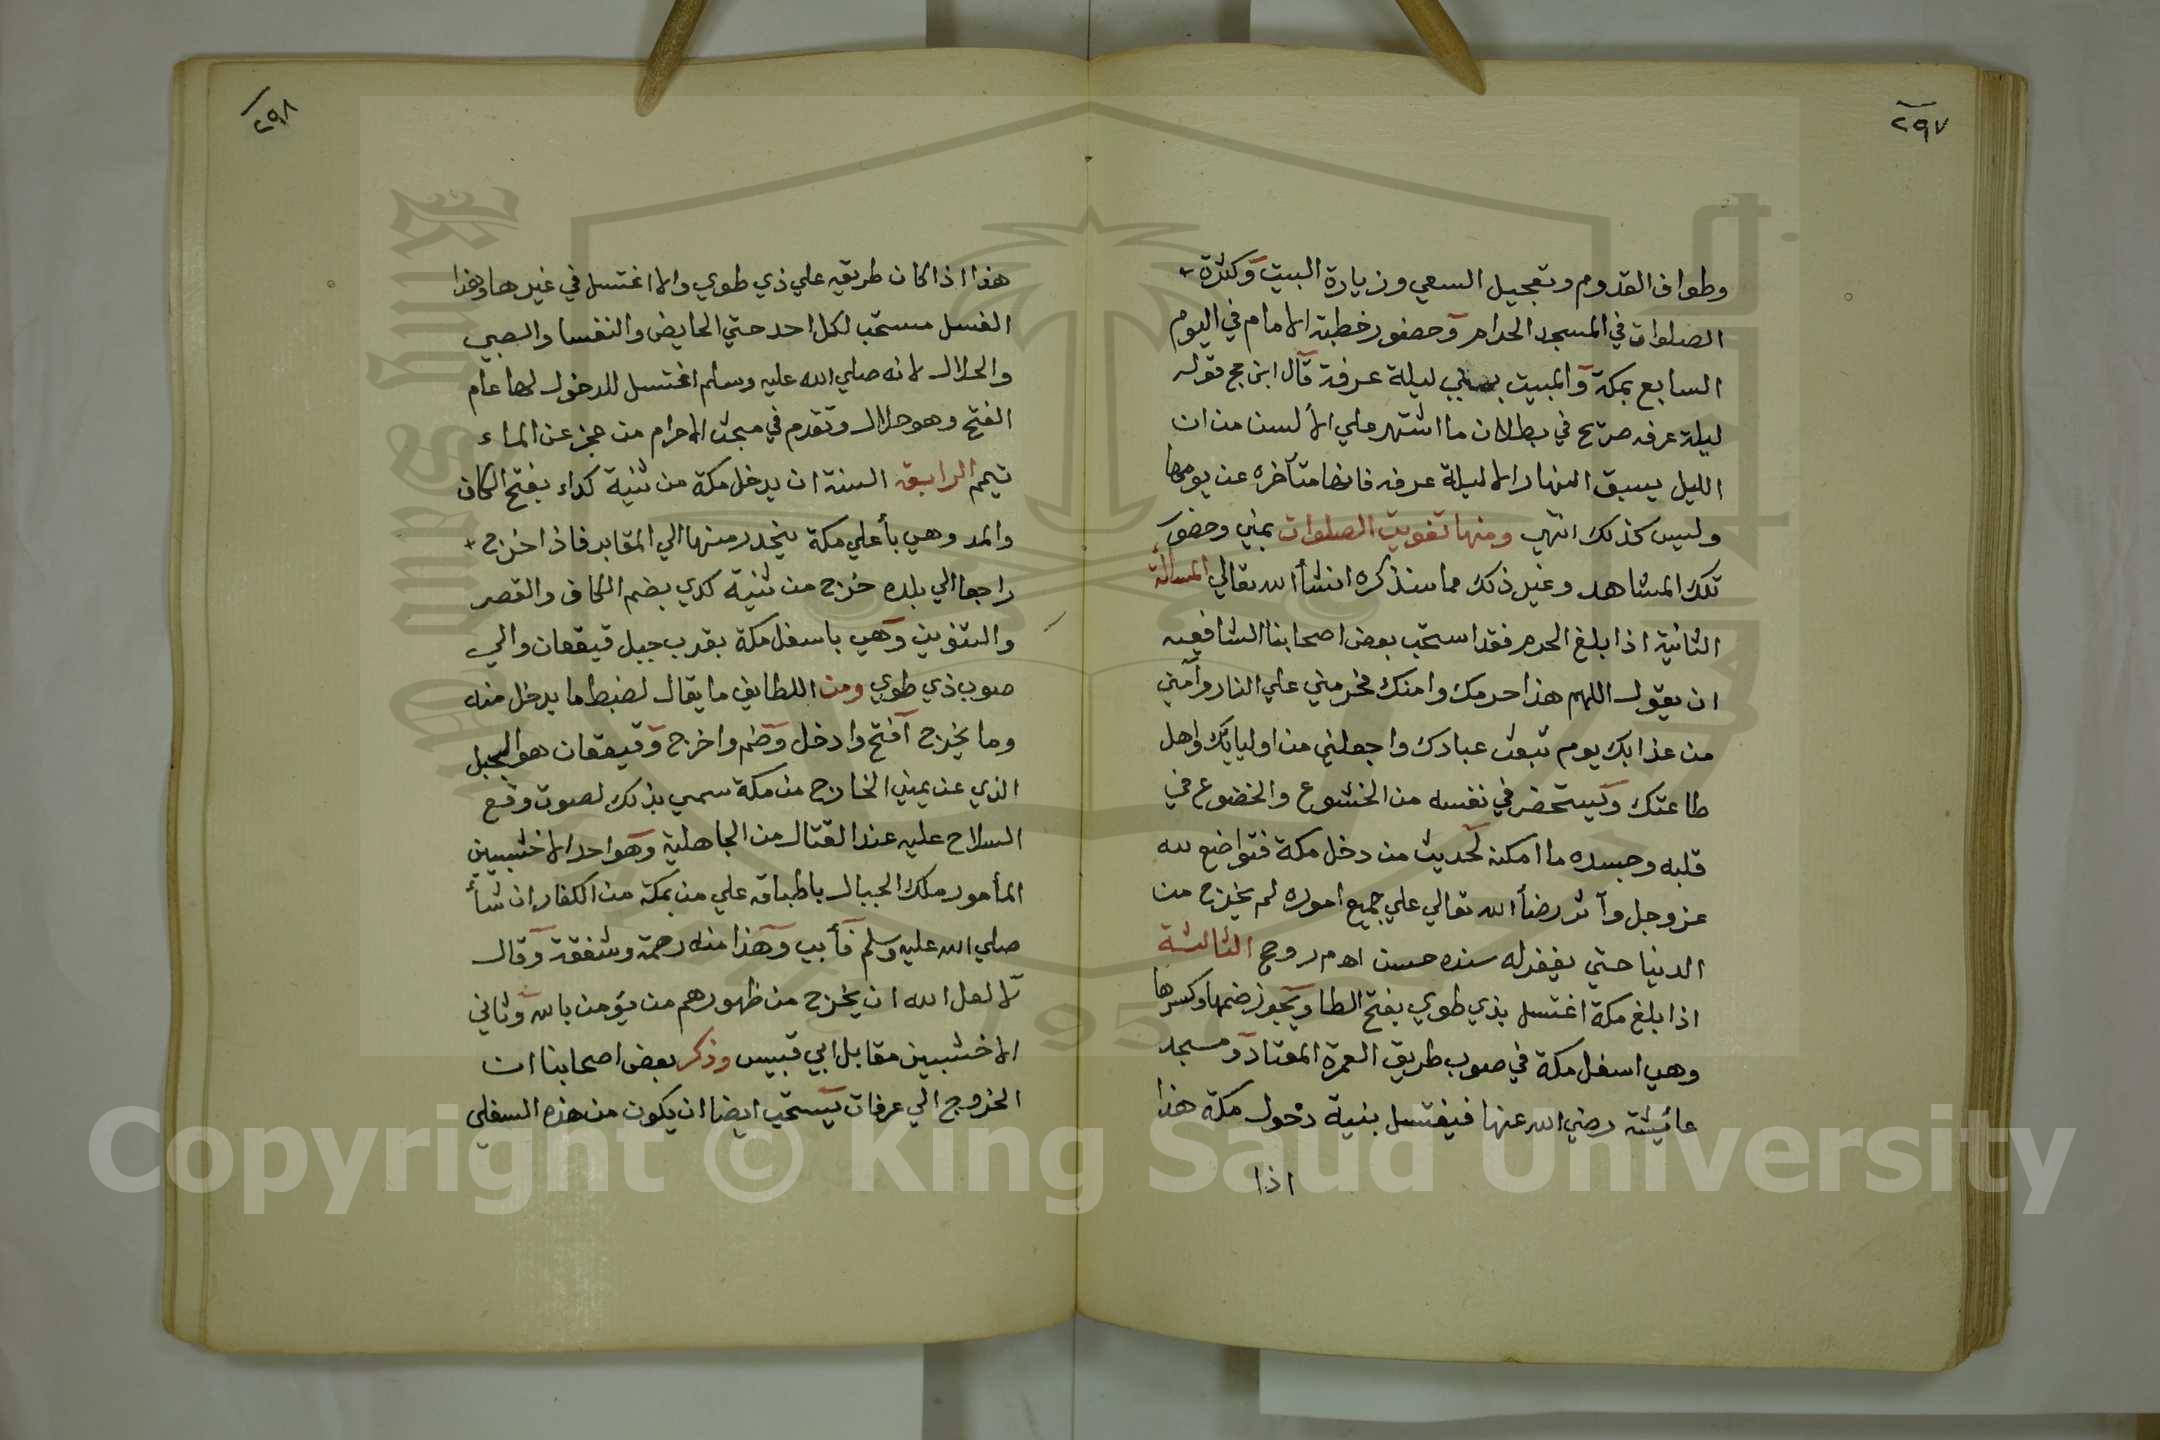 ٢٩٧
وطواف القدوم وتعجيل السعي وزيارة البيت وكثرة
الصلوات في المسجد الحرام وحضور خطبة الامام في اليوم
السابع بمكة والمبيت بمني ليلة عرفة قال ابن حج قوله
ليلة عرفه صريح في بطلان ما اشتهر علي الألسن من ان
الليل يسبق النهار الا ليلة عرفه فانها متأخره عن يومها
وليس كذلك انتهي ومنها تفويت الصلوات بمني وحضور
تلك المشاهد وغير ذلك مما سنذكره انشأ الله تعالي المسألة
الثانية اذا بلغ الحرم فقد استحب بعض اصحابنا الشافعيه
ان يقول اللهم هذا حرمك وامنك فحرمني علي النار وآمني
من عذابك يوم تبعث عبادك واجعلني من اوليايك واهل
طاعتك ويستحضر في نفسه من الخشوع والخضوع في
قلبه وجسده ما امكنه لحديث من دخل مكة فتواضع لله
عز وجل وآثر رضأ الله تعالي علي جميع اموره لم يخرج من
الدنيا حتي يغفر له سنده حسن اهـ م ر وحج الثالثة
اذا بلغ مكة اغتسل بذي طوي بفتح الطا ويجوز ضمها وكسرها
وهي اسفل مكة في صوب طريق العمرة المعتاد ومسجد
عائيشة رضي الله عنها فيغتسل بنية دخول مكة هذا
اذا
٢٩٨
هذا اذا كان طريقه علي ذي طوي والا اغتسل في غيرها وهذا
الغسل مستحب لكل احد حتي الحايض والنفسا والصبي
والحلال لانه صلي الله عليه وسلم اغتسل للدخول لها عام
الفتح وهو حلال وتقدم في مبحث الاحرام من عجز عن الماء
تيمم الرابعة السنة ان يدخل مكة من ثنية كداء بفتح الكاف
والمد وهي بأعلي مكة ينحدر منها الي المقابر فاذا خرج
راجعا الي بلده خرج من ثنية كدي بضم الكاف والقصر
والتنوين وهي باسفل مكة بقرب جبل قيقعان والي
صوب ذي طوي ومن اللطايف ما يقال لضبط ما يدخل منه
وما يخرج افتح وادخل وضم واخرج وقيقعان هو الجبل
الذي عن يمين الخارج من مكة سمي بذلك لصوت وقع
السلاح عليه عند القتال من الجاهلية وهو احد الاخشبيين
المأمور ملك الجبال باطباقه علي من بمكة من الكفار ان شأ
صلي الله عليه وسلم فأبي وهذا منه رحمة وشفقة وقال
لا لعل الله ان يخرج من ظهورهم من يؤمن بالله وثاني
الاخشبين مقابل ابي قبيس وذكر بعض اصحابنا ان
الخروج الي عرفات يستحب ايضا ان يكون من هذه السفلي
Copyright © King Saud University
King Saud University
1957